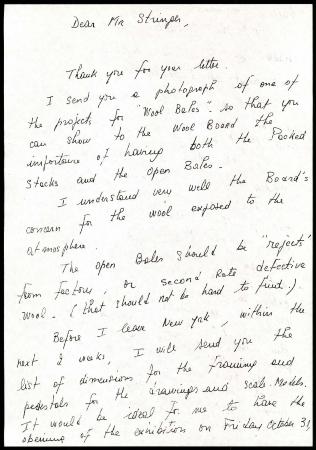 Dear Mr Stringer,
Thank you for your letter.
I send you a photograph of one of
the projects for "Wool Bales". so that you
can show to the Wool Board the
importance of having both the Packed
Stacks and the Open Bales.
I understand very well the Board's
concern for the wool exposed to the
atmosphere.
The open Bales should be "rejects"
from factory, or second Rate defective
wool. (that should not be hard to find.)
Before I leave New York, within the
next 2 weeks, I will send you the
list of dimensions for the framing and
pedestals for the drawings and scale Models.
It would be ideal for me to have the
opening of the exhibition on Friday October 31,